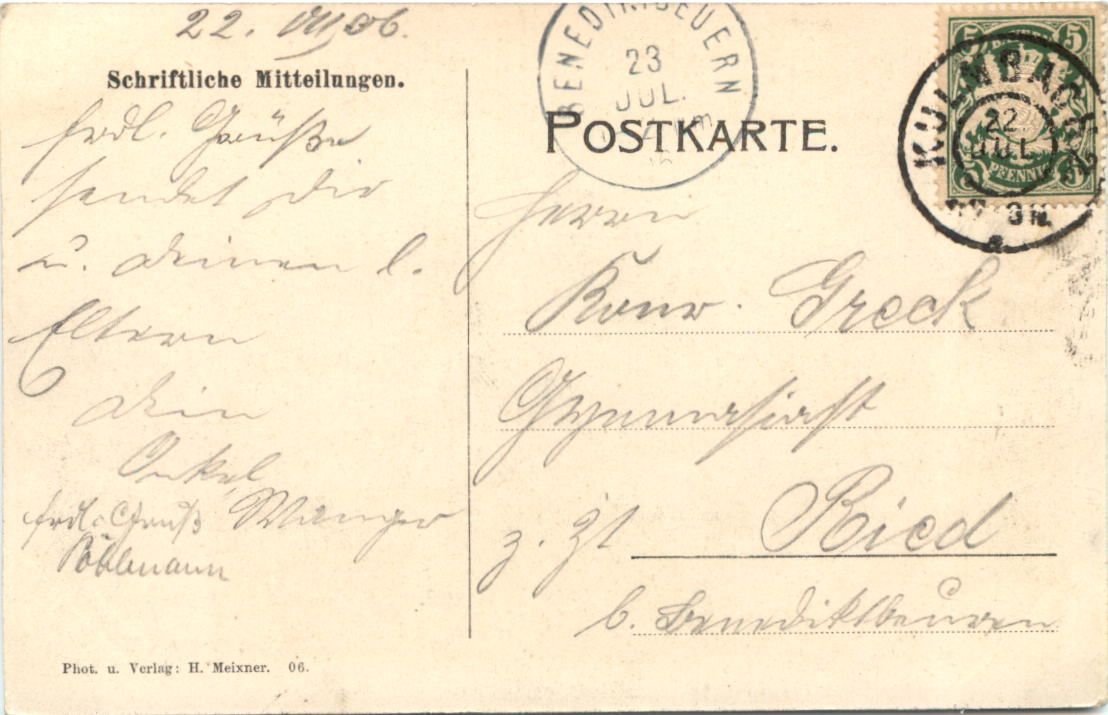 22. VII 06.
Schriftliche Mitteilungen.
frdl. Grüße
sendet dir
u. deinen l.
Eltern
dein
Onkel
frdl. Gruß
Pöhlmann
Phot. u. Verlag: H. Meixner. 06.
BENEDIKTBEUERN
23
JUL.
POSTKARTE.
5 5
KULMBACH
22
JUL.
PFENNIG
5 5
Herrn
Konr. Greck
Gymnasiast
z. Zt Ried
b. Benediktbeuren